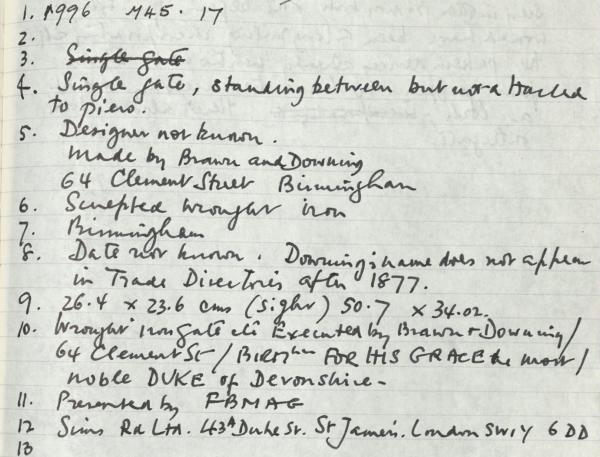 1. 1996 M45.17
2.
3. Single gate
4. Single gate, standing between but not attached
to piers.
5. Designer not known.
Made by Brawn and Downing
64 Clement Street Birmingham
6. Sculpted wrought iron
7. Birmingham
8. Date not known. Downing's name does not appear
in Trade Directories after 1877.
9. 26.4 x 23.6 cms (sight) 50.7 x 34.02.
10. Wrought iron gate Executed by Brawn + Downing/
64 Clement St / BIRMhm FOR HIS GRACE the most/
noble DUKE of Devonshire -
11. Presented by FBMAG
12 Sims Rd Ltd. 43A Duke St. St James's. London SW1Y 6DD
13